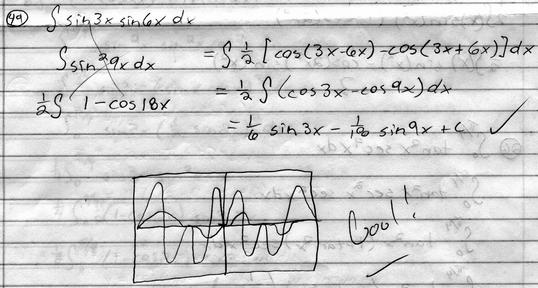 49 ∫ sin3x sin6x dx
∫ sin²9x dx = ∫ ½ [cos(3x-6x) - cos(3x+6x)] dx
½ ∫ 1-cos18x = ½ ∫ (cos3x - cos9x) dx
= 1/6 sin3x - 1/18 sin9x + c ✓
Cool!
✓